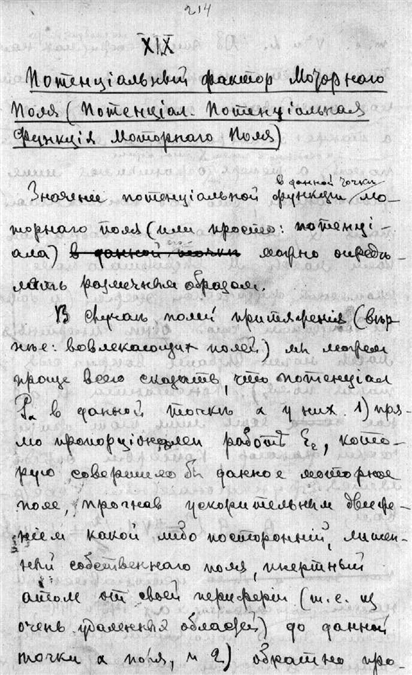 214
XIX
Потенціальный фактор Моторнаго
Поля (Потенціал. Потенціальная
Функція Моторнаго Поля)
в данной точки
Значеніе потенціальной функции мо-
торнаго поля (или просто: потенці-
ала) в данной точки можно опредѣ-
лять различным образом.
В случаѣ полей притяженія (вѣр-
нѣе: вовлекающих полей) мы можем
проще всего сказать, что потенціал
в данной точкѣ α у них 1) пря-
мо пропорціонален работѣ
, кото-
рую совершило бы данное моторное
поле, прогнав ускорительным движе-
ніем какой либо посторонній, лишен-
ный собственнаго поля, инертный
атом от своей периферіи (т.е. из
очень удаленных областей) до данной
точки α поля, и 2) обратно про-